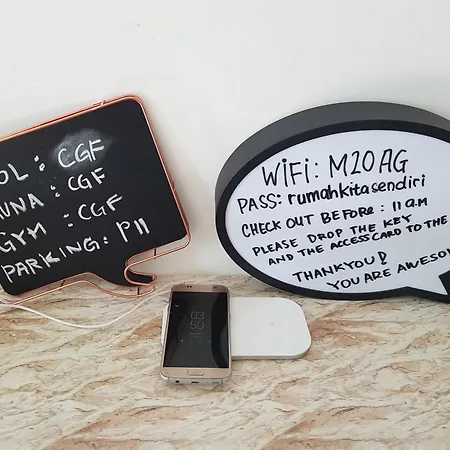 OL: CGF
UNA: CGF
GYM: CGF
PARKING: P11
WiFi: M20AG
PASS: rumahkitasendiri
CHECK OUT BEFORE: 11 a.m
PLEASE DROP THE KEY
AND THE ACCESS CARD TO THE
THANKYOU!
YOU ARE AWESO
03
50